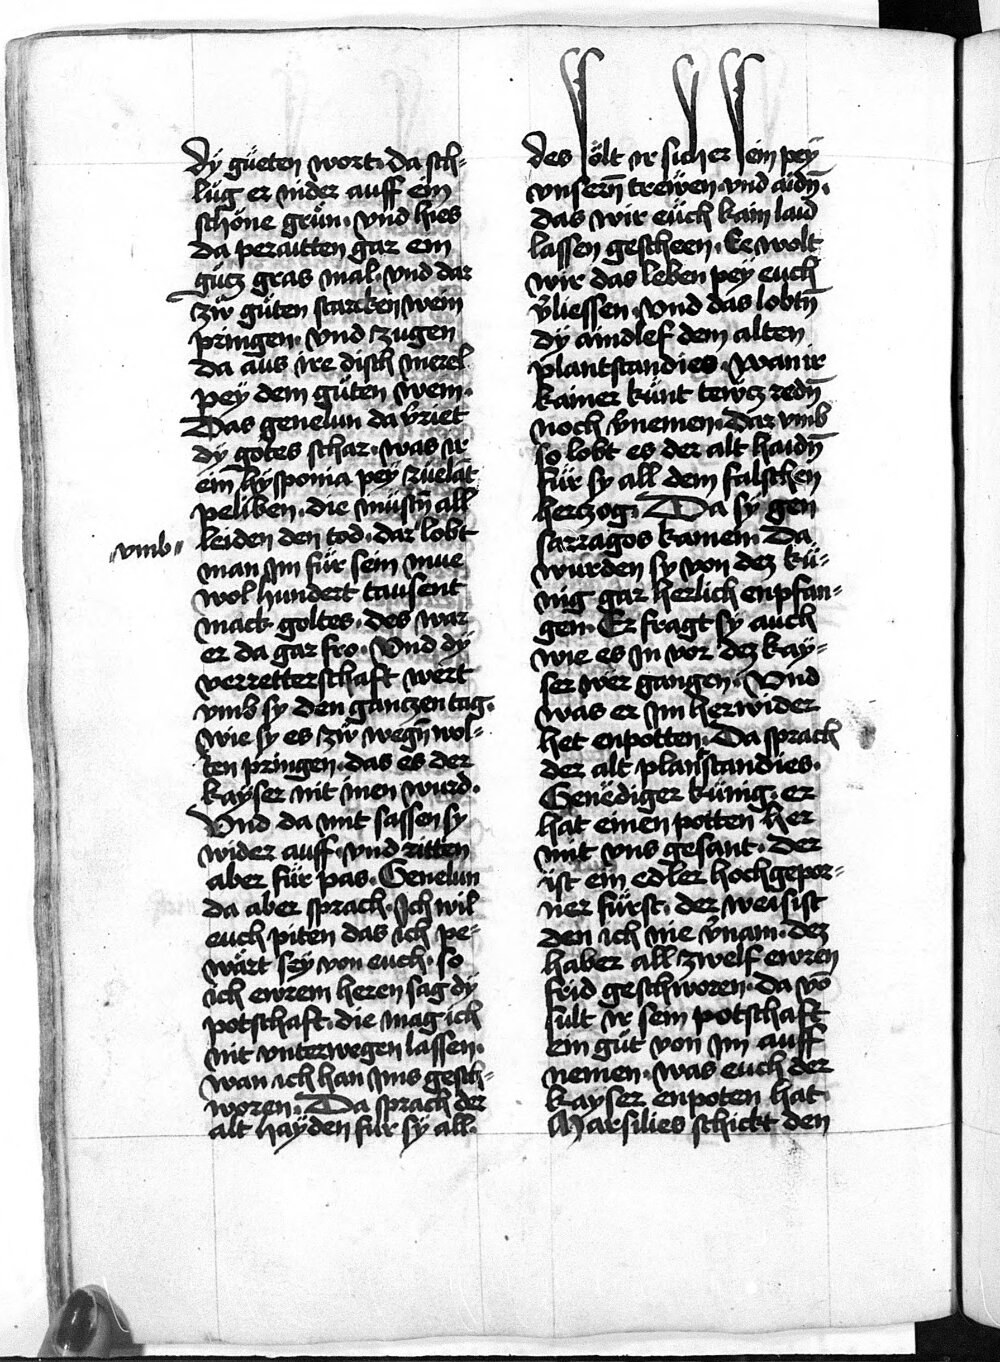 dÿ güeten wort. Da sch-
lüg er nider auff ein
schöne grün. vnd hies
da peraitten gar ein
gücz gras mal. vnd dar
zw güten starcken wein
pringen. vnd zugen
da aus ire disch merel
peÿ dem güten wein.
Das genelun da v̈riet
dÿ gotes schar. was ir
ein hÿsponia peÿ rüelat
peliben. die müstn̄ all
leiden den tod. dar lobt
„vmb„
man Im für sein mue
wol hundert tausent
mack goltes. des war
er da gar fro. Vnd dÿ
verretterschaft wert
vmb sy den ganczen tag.
wie sy es zw wegn̄ wol-
ten pringen. das es der
kaÿser nit inen wurd.
Vnd da mit sassen sy
wider auff. vnd ritten
aber für pas. Genelun
da aber sprach. Ich wil
euch piten das ich pe-
wärt seÿ von euch. so
ich ewrem heren sag dÿ
potschaft. die mag ich
nit vnterwegen lassen.
wan ich han Ims gesch-
woren. Da sprach der
alt haÿden für sy all.
des sölt ir sicher sein peÿ
vnsern̄ trewen. vnd aidn̄.
das wir euch kain laid
lassen gescheen. Ee wolt
wir das leben peÿ euch
v̈liessen. Vnd das lobtn̄
dÿ aindlef dem alten
plantstandies. Wan ir
kainer künt tewcz redn̄
noch v̈nemen. Dar vmb
so lobt es der alt haidn̄
für sy all dem falschen
herczog. Da sy gen
sarragos kamen. Da
wurden sy von dez kü-
nig gar herlich enpfan-
gen. Er fragt sy auch
wie es In vor dez kay-
ser wer gangen. Vnd
was er Im her wider
het enpotten. Da sprach
der alt planstandies.
Genëdiger künig. er
hat einen potten her
mit vns gesant. Der
ist ein edler hochgepor-
ner fürst. der weisist
den ich nie v̈nam. dez
haber all zwelf ewren
frid geschworen. Da vō
sült ir sein potschaft
ein güt von Im auff
nemen. was euch der
kayser enpoten hat.
Marsilies schickt den